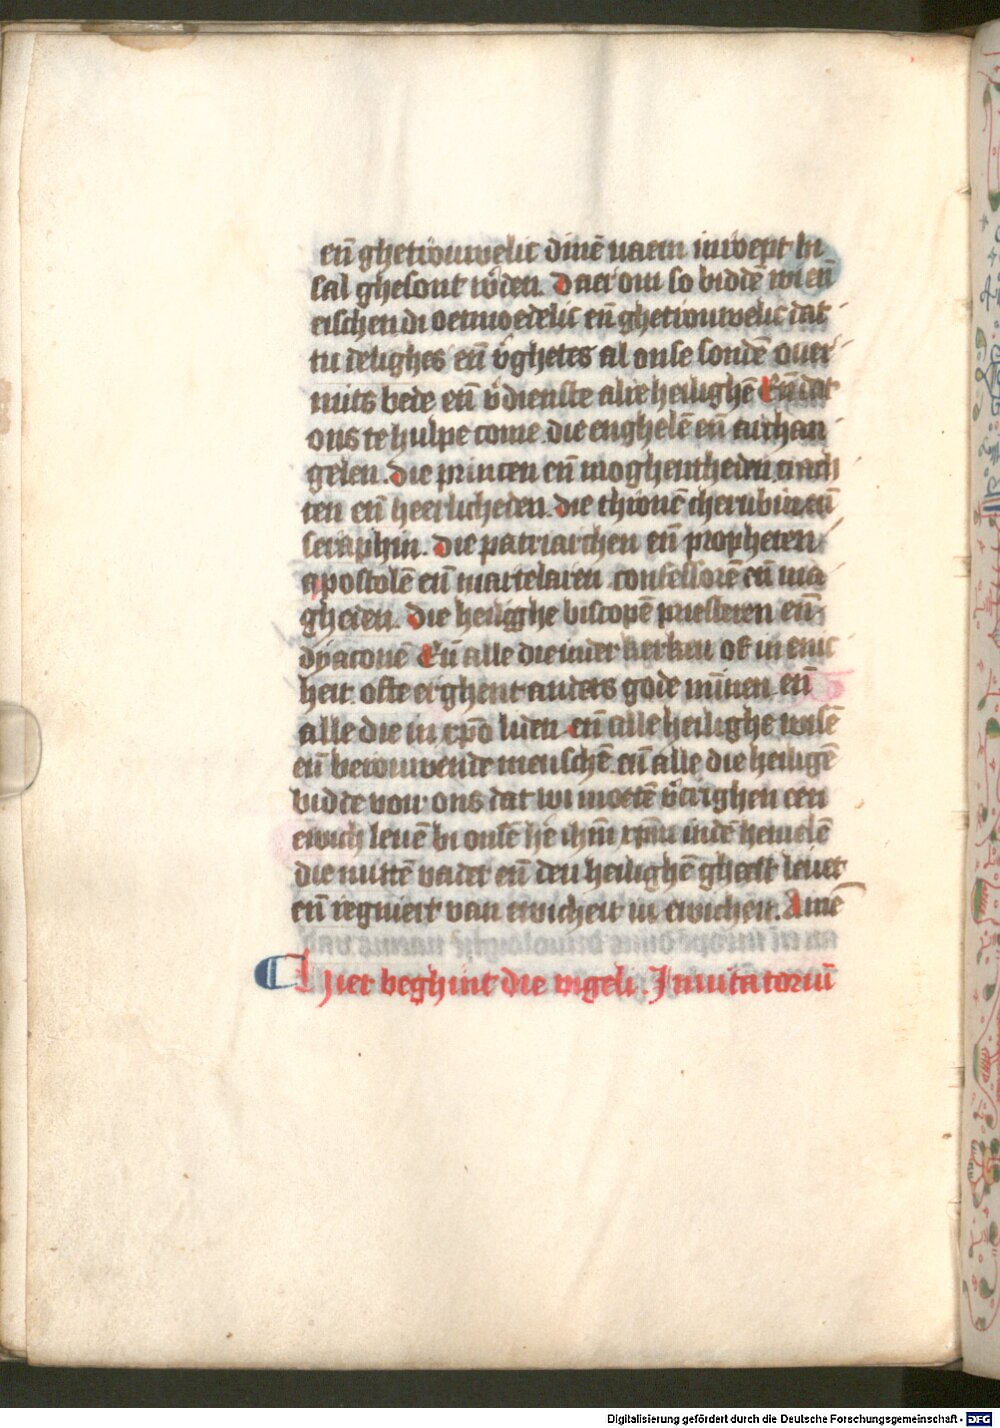 eñ ghetrouwelic dinē naem inroept hi
sal ghesont wͦden. Daer om so biddē wi eñ
eischen di oetmoedelic eñ ghetrouwelic dat
tu delighes eñ vͦghetes al onse sondē ouer
mits bede eñ vͦdienste alre heilighē Eñ dat
ons te hulpe come die enghelē eñ archan
gelen. Die princen eñ moghentheden crach
ten eñ heerlicheden. die thronē cherubin eñ
seraphin. Die patriarchen eñ propheten
apostolē eñ martelaren confessorē eñ ma
gheden. Die heilighe biscopē priesteren eñ
dyaconē Eñ alle die in der kerken of in enic
heit ofte erghent anders gode minnen eñ
alle die in xp̄o liden eñ alle heilighe wisē
eñ berouwende menschē eñ alle die heiligē
bidde voir ons dat wi motē vͦcrighen een
ewich leuē bi onsē h̄e ih̄m xp̄m in dē hemelē
die mittē vader eñ den heilighē gheest leuet
eñ regniert van ewicheit in ewicheit. Amē
Hier beghint die vigeli. Inuitatoriū
Digitalisierung gefördert durch die Deutsche Forschungsgemeinschaft - DFG